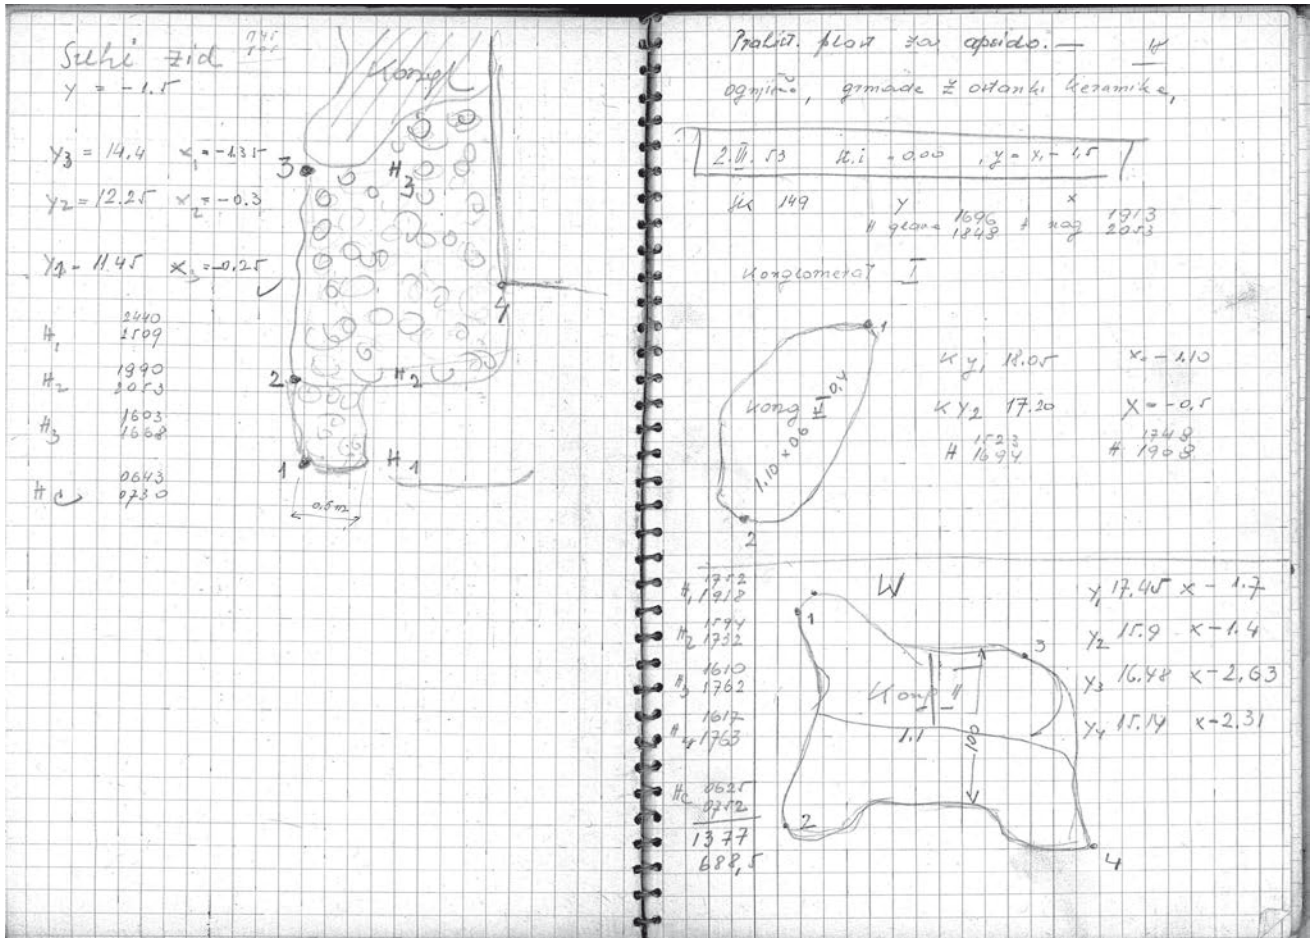 Suhi zid
Y = -1.5
Y3 = 14.4 x1 = -1.35
Y2 = 12.25 x2 = -0.3
Y1 = 11.45 x3 = -0.25
H1 2440
2509
H2 1990
2053
H3 1603
1668
H 0643
0730
Kongl
3
H3
4
2
H2
1
H1
0.5m
Prahist. plast za apsido. —
ognjišče, grmade z ostanki keramike,
2.III.53 = 0.00 , y = x, - 1,5
149 Y x
H glave 1696 + nog 1913
1848 2053
Konglomerat I
1
Kong I
1.10 + 0.6 0.4
2
K y1 18.05 x = -1.10
K Y2 17.20 X = -0,5
H 1523 H 1748
1694 1908
H1 1752
1918
H2 1594
1732
H3 1610
1762
H4 1617
1763
Hc 0625
0752
1377
688,5
W
1
3
Kong II
1.1
100
2
4
Y1 17.45 x - 1.7
Y2 15.9 x - 1.4
Y3 16.48 x - 2,63
Y4 15.14 x - 2.31